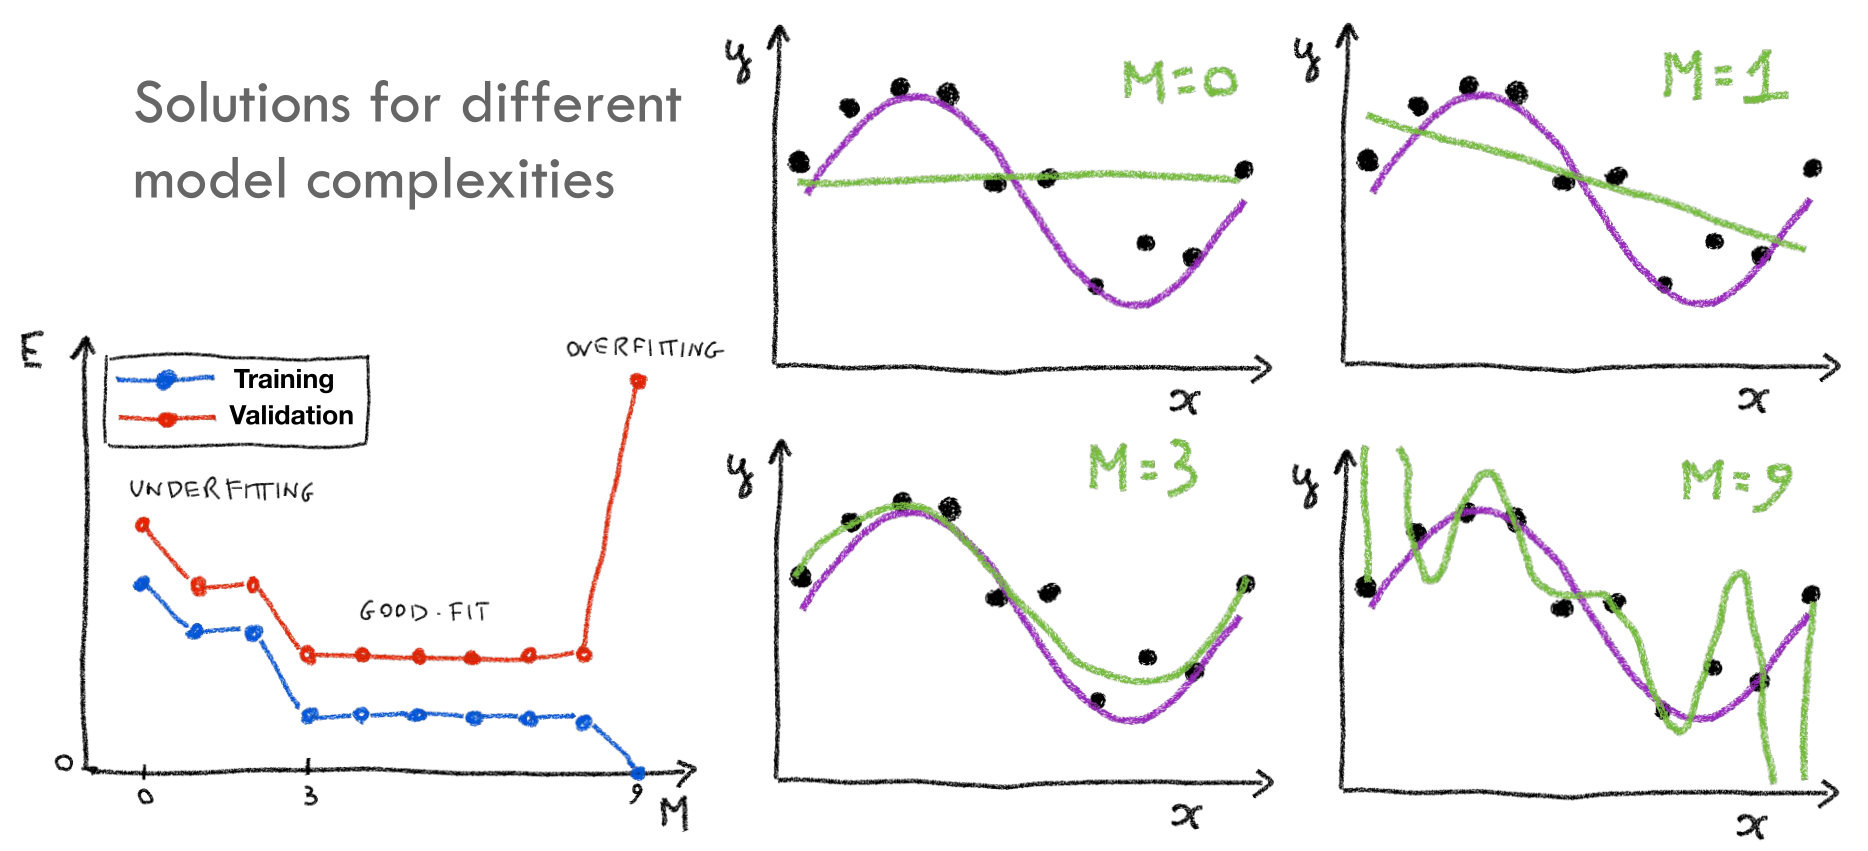 Solutions for different
model complexities
E
Training
Validation
UNDERFITTING
OVERFITTING
GOOD-FIT
0
0
3
9
M
y
M=0
x
y
M=1
x
y
M=3
x
y
M=9
x